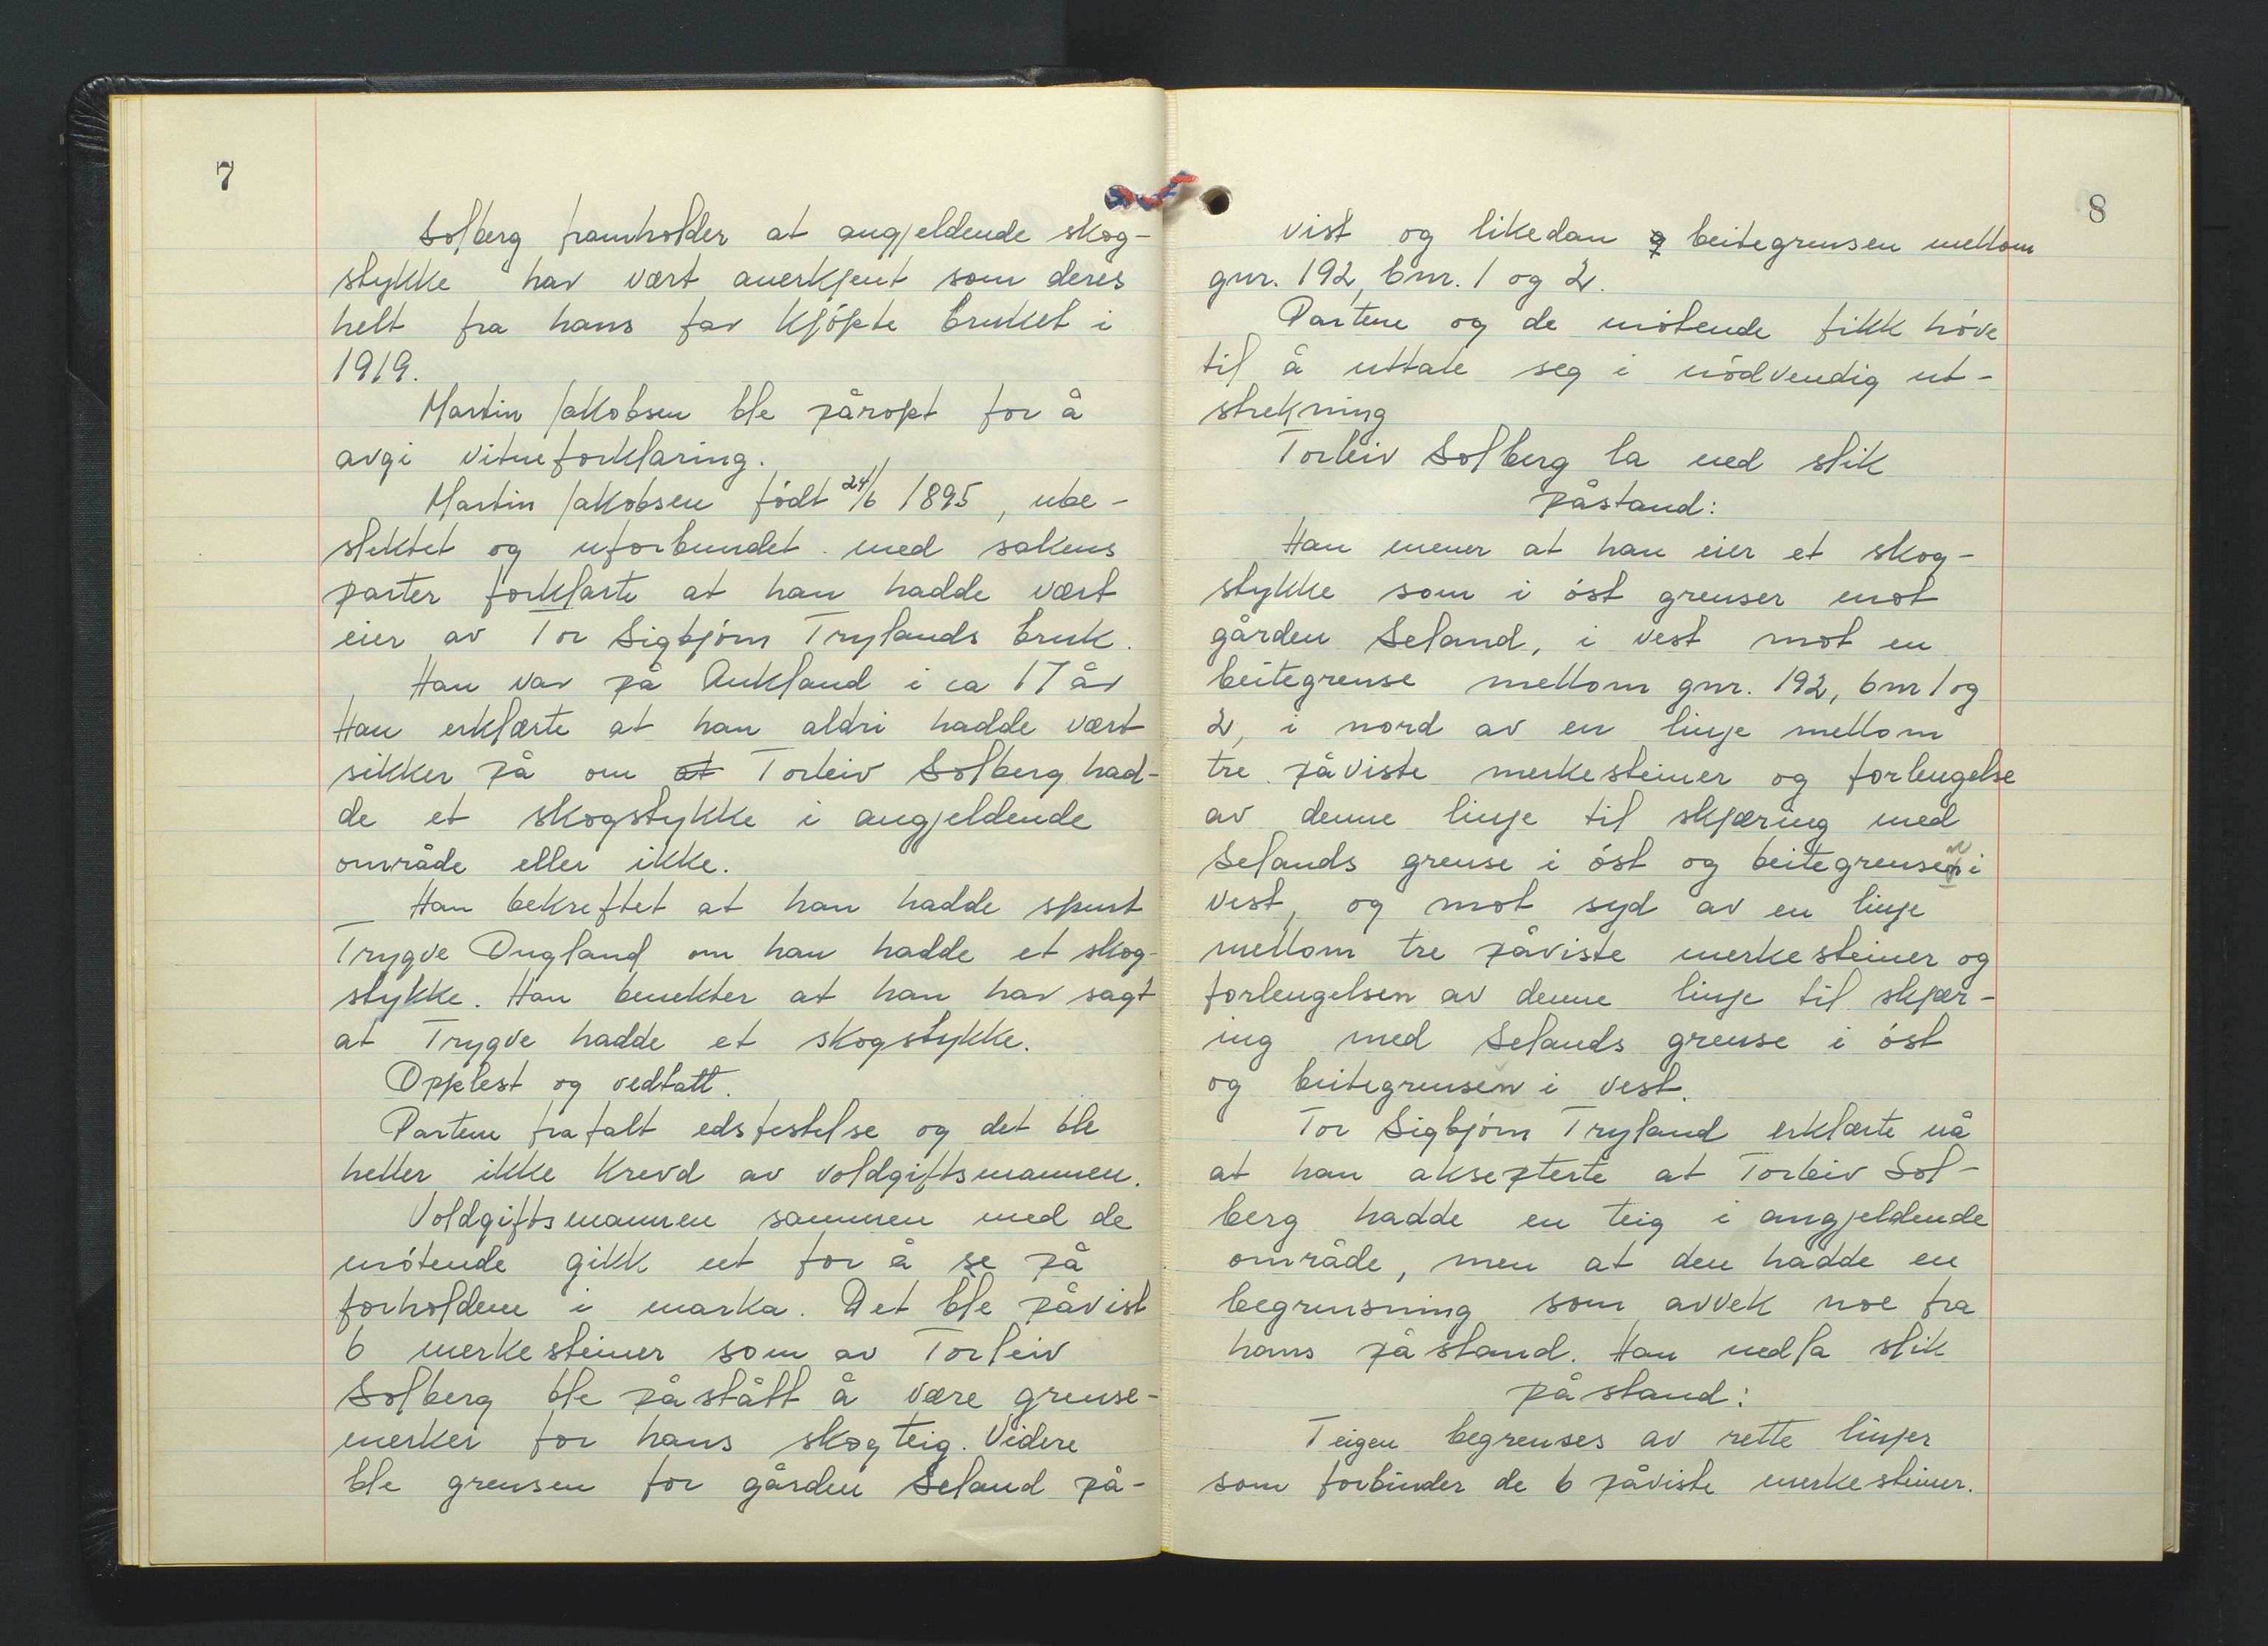 7
Solberg framholder at angjeldende skog-
stykke har vært anerkjent som deres
helt fra hans far kjöpte bruket i
1919.
Martin Jakobsen ble påropt for å
avgi vitneforklaring.
Martin Jakobsen födt 24/6 1895, ube-
slektet og uforbundet med sakens
parter forklarte at han hadde vært
eier av Tor Sigbjörn Trylands bruk.
Han var på Aukland i ca 17 år
Han erklærte at han aldri hadde vært
sikker på om at Torleiv Solberg had-
de et skogstykke i angjeldende
område eller ikke.
Han bekreftet at han hadde spurt
Trygve Ougland om han hadde et skog-
stykke. Han benekter at han har sagt
at Trygve hadde et skogstykke.
Opplest og vedtatt.
Partene frafalt edsfestelse og det ble
heller ikke krevd av voldgiftsmannen.
Voldgiftsmannen sammen med de
mötende gikk ut for å se på
forholdene i marka. Det ble påvist
6 merkesteiner som av Torleiv
Solberg ble påstått å være grense-
merker for hans skogteig. Videre
ble grensen for gården Seland på-
8
vist og likedan og beitegrensen mellom
gnr. 192, bnr. 1 og 2.
Partene og de mötende fikk höve
til å uttale seg i nödvendig ut-
strekning
Torleiv Solberg la ned slik
påstand:
Han mener at han eier et skog-
stykke som i öst grenser mot
gården Seland, i vest mot en
beitegrense mellom gnr. 192, bnr 1 og
2, i nord av en linje mellom
tre påviste merkesteiner og forlengelse
av denne linje til skjæring med
Selands grense i öst og beitegrensen i
vest, og mot syd av en linje
mellom tre påviste merkesteiner og
forlengelsen av denne linje til skjær-
ing med Selands grense i öst
og beitegrensen i vest.
Tor Sigbjörn Tryland erklærte nå
at han aksepterte at Torleiv Sol-
berg hadde en teig i angjeldende
område, men at den hadde en
begrensning som avvek noe fra
hans påstand. Han nedla slik
påstand:
Teigen begrenses av rette linjer
som forbinder de 6 påviste merkesteiner.